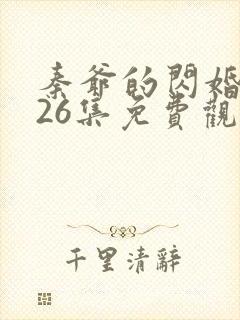 秦爺的閃婚
26集免費觀
千里清辭